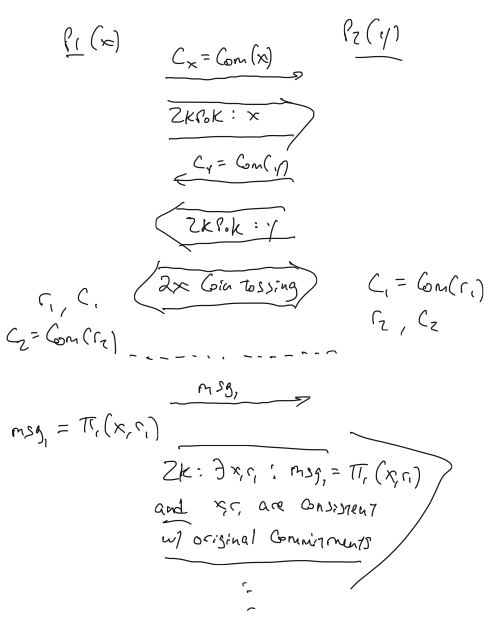 P₁(x)
P₂(y)
Cₓ = Com(x)
ZKPoK : x
Cᵧ = Com(y)
ZKPoK : y
2x Coin tossing
r₁, C₁
C₂ = Com(r₂)
C₁ = Com(r₁)
r₂, C₂
msg₁
msg₁ = Π₁(x, r₁)
ZK: ∃ x, r₁ : msg₁ = Π₁(x, r₁)
and x, r₁ are consistent
w/ original commitments
⋮